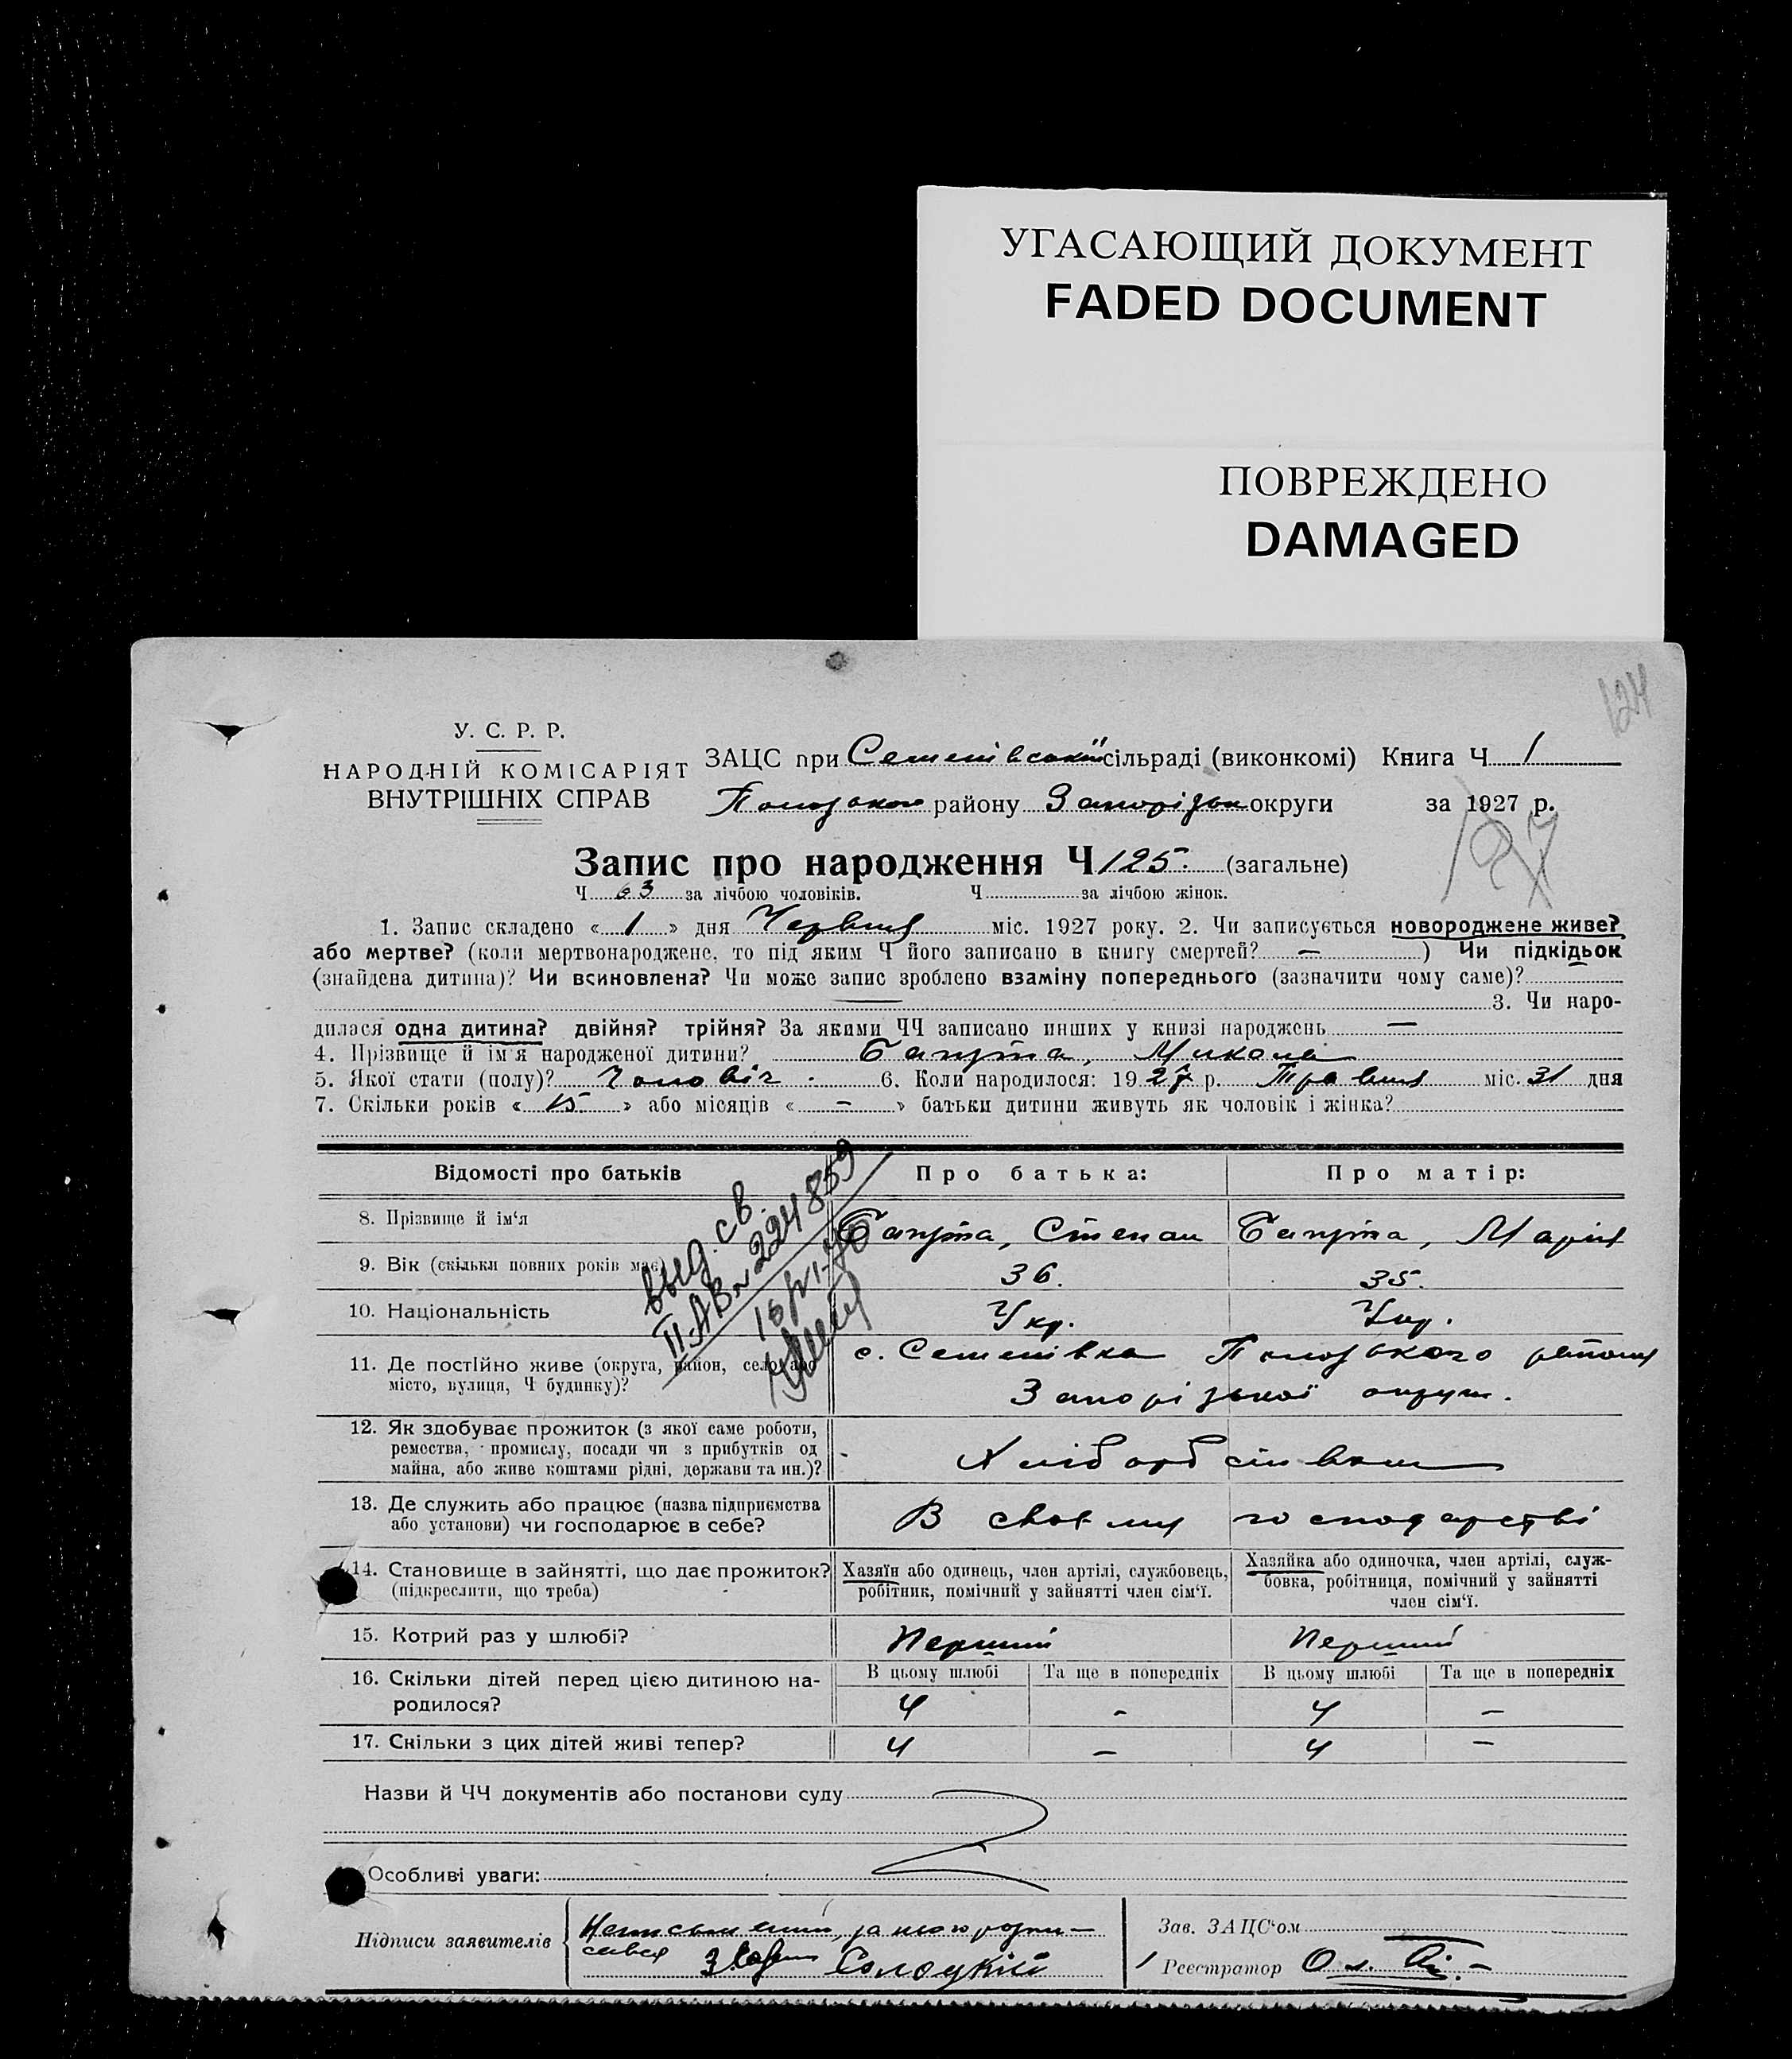 УГАСАЮЩИЙ ДОКУМЕНТ
FADED DOCUMENT
ПОВРЕЖДЕНО
DAMAGED
124
У. С. Р. Р.
НАРОДНІЙ КОМІСАРІЯТ
ВНУТРІШНІХ СПРАВ
ЗАЦС при Семенівській сільраді (виконкомі) Книга Ч 1
Пологського району Запорізьк округи за 1927 р.
1927
Запис про народження Ч 125. (загальне)
Ч 63 за лічбою чоловіків. Ч за лічбою жінок.
1. Запис складено « 1 » дня Червня міс. 1927 року. 2. Чи записується новороджене живе?
або мертве? (коли мертвонароджене, то під яким Ч його записано в книгу смертей? — ) Чи підкідьок
(знайдена дитина)? Чи всиновлена? Чи може запис зроблено взаміну попереднього (зазначити чому саме)?
— 3. Чи наро-
дилася одна дитина? двійня? трійня? За якими ЧЧ записано инших у книзі народжень —
4. Прізвище й ім'я народженої дитини? Микола
5. Якої стати (полу)? Чоловіч. 6. Коли народилося: 1927 р. Травня міс. 31 дня
7. Скільки років « 15 » або місяців « — » батьки дитини живуть як чоловік і жінка?
Відомості про батьків Про батька: Про матір:
8. Прізвище й ім'я Степан Марія
9. Вік (скільки повних років має) 36. 35.
10. Національність Укр. Укр.
выд. св.
II-АВ № 224859
11. Де постійно живе (округа, район, село або с. Семенівка Пологського району
місто, вулиця, Ч будинку)? Запорізької округи.
12. Як здобуває прожиток (з якої саме роботи,
ремества, промислу, посади чи з прибутків од
майна, або живе коштами рідні, держави та ин.)?
13. Де служить або працює (назва підприємства В своєму господарстві
або установи) чи господарює в себе?
14. Становище в зайнятті, що дає прожиток? Хазяїн або одинець, член артілі, службовець, Хазяйка або одиночка, член артілі, служ-
(підкреслити, що треба) робітник, помічний у зайнятті член сім'ї. бовка, робітниця, помічний у зайнятті
член сім'ї.
15. Котрий раз у шлюбі? Перший Перший
16. Скільки дітей перед цією дитиною на- В цьому шлюбі Та ще в попередніх В цьому шлюбі Та ще в попередніх
родилося? 4 - 4 —
17. Скільки з цих дітей живі тепер? 4 — 4 —
Назви й ЧЧ документів або постанови суду
Особливі уваги:
Підписи заявителів Неписьменний, за нього розпи-
сався Солоцкій
Зав. ЗАЦС'ом
Реєстратор